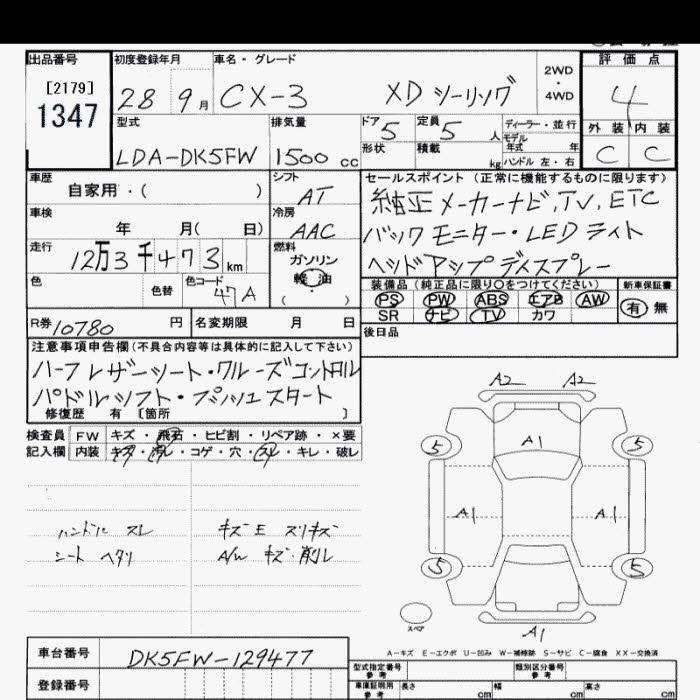 出品番号 初度登録年月 車名・グレード 評価点
[2179]
1347
28 9月 CX-3 XD ツーリング 2WD・4WD 4
型式 排気量 ドア 5 定員 5 人 ディーラー・並行 外装 内装
モデル年式 年
LDA-DK5FW 1500 cc 形状 積載 kg ハンドル 左・右 C C
車歴 シフト セールスポイント (正常に機能するものに限ります)
自家用・( ) AT 純正メーカーナビ,TV,ETC
車検 冷房
年 月( 日) AAC バックモニター・LEDライト
走行 燃料
12万3千473km ガソリン ヘッドアップディスプレー
軽油
色 色替 色コード 47A ( ) 装備品 (純正品に限り○をつけてください) 新車保証書
PS PW ABS エアB AW 有・無
SR ナビ TV カワ
R券 10780 円 名変期限 月 日 後日品
注意事項申告欄 (不具合内容等は具体的に記入して下さい)
ハーフレザーシート・クルーズコントロール
パドルシフト・プッシュスタート
修復歴 有 [箇所 ]
A2 A2
検査員 FW キズ・飛石・ヒビ割・リペア跡・×要
記入欄 内装 キズ・汚レ・コゲ・穴・スレ・キレ・破レ
5 A1 5
A1 A1
ハンドル スレ キズE スリキズ
シート ヘタリ A/W キズ・削レ
5 5
スペア
A1
A-キズ E-エクボ U-凹み W-補修跡 S-サビ C-腐食 XX-交換済
車台番号 DK5FW-129477
型式指定番号 参考 類別区分番号 参考
登録番号
車庫証明用 参考 長さ cm 幅 cm 高さ cm